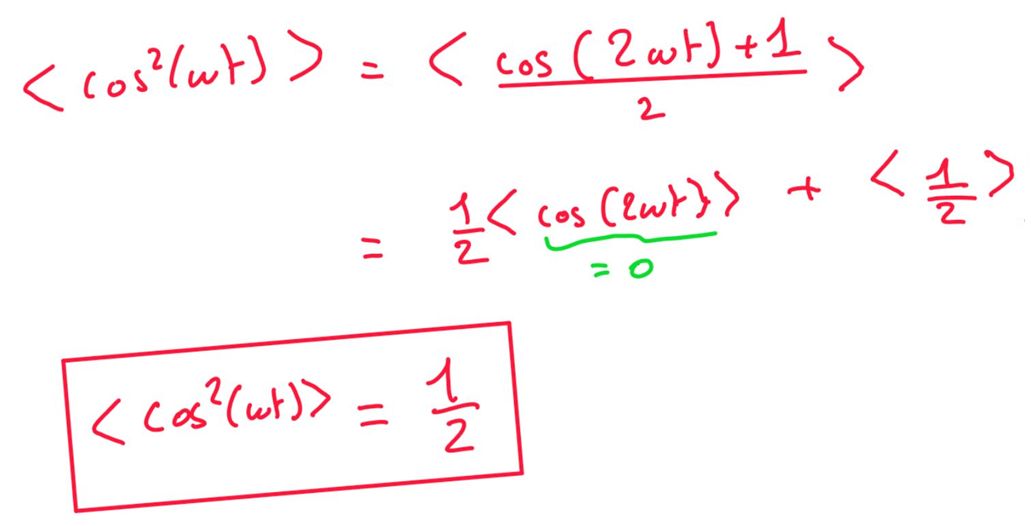 < cos²(ωt) > = < (cos(2ωt)+1)/2 >
= 1/2 < cos(2ωt) > + < 1/2 >
= 0
< cos²(ωt) > = 1/2